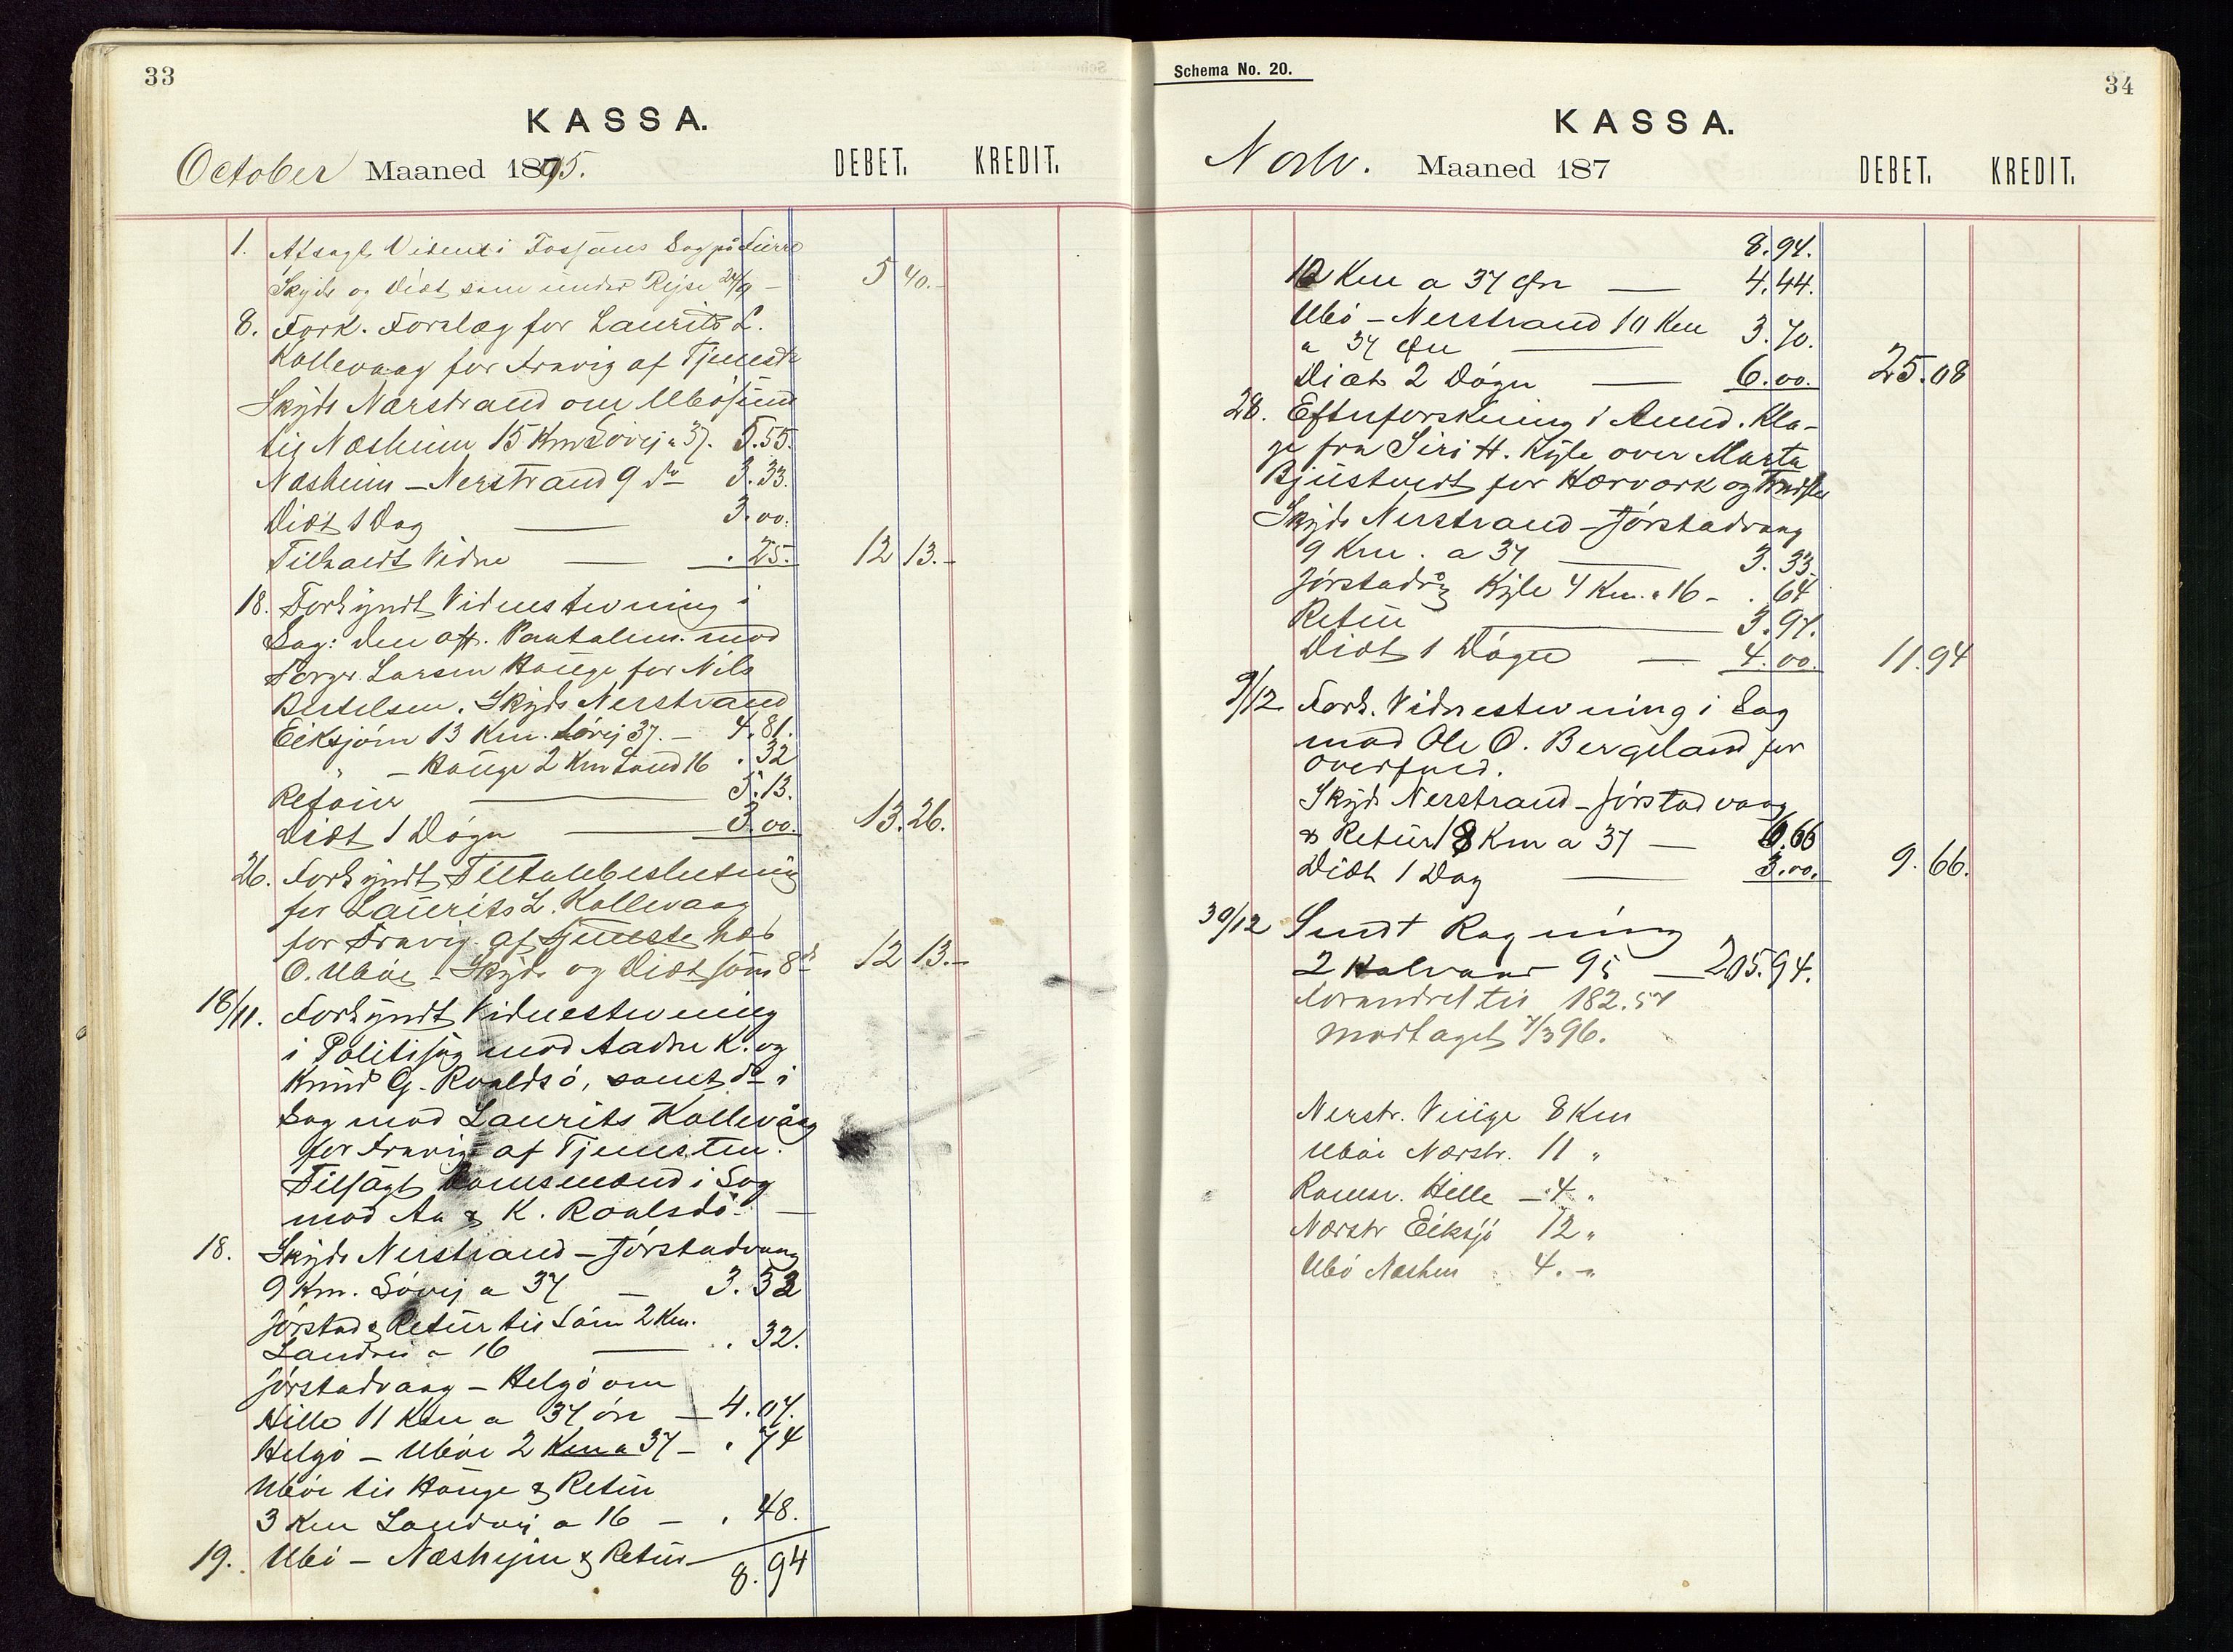 33
KASSA.
October Maaned 1895.
DEBET. KREDIT.
1. Afsagt Vidnet i Sag på
Skyds og Diæt som under Rejse 24/9 - 5 40.-
8. Fork. Forelæg for Laurits L.
Kallevaag for Fravig af Tjeneste
Skyds Nærstrand om Ubøsund
til Næsheim 15 Km Søvej a 37. 5.55.
Næsheim - Nerstrand 9 do 3.33.
Diæt 1 Dag 3.00.
Tilkaldt Vidne — .25. 12 13.-
18. Forkyndt Vidnestevning i
Sag: den off. Paatalem. mod
Torger Larsen Hauge for Nils
Bertelsen. Skyds Nerstrand
Eiksjøen 13 Km. Søvej 37. - 4.81.
" - Hauge 2 Km Land 16 .32
Retour — 5.13.
Diæt 1 Døgn — 3.00. 13.26.
26. Forkyndt Tiltalebeslutning
for Laurits L. Kallevaag
for Fravig. af Tjeneste hos
O. Ubøe - Skyds og Diæt som 8de 12 13.-
18/11. Forkyndt Vidnestevning
i Politisag mod Aadne K. og
Knud G. Roaldsø, samt do i
Sag mod Laurits Kallevåag
for Fravig af Tjenesten.
Tilsagt Domsmænd i Sag
mod Aa & K. Roalsdø. —
18. Skyds Nerstrand - Jørstadvaag
9 Km. Søvej a 37 - 3.33
Jørstad & Retur til Søen 2 Km.
Landvei a 16 — . 32.
Jørstadvaag - Helgø om
Hille 11 Km a 37 øre - 4.07.
Helgø - Ubøe 2 Km a 37 - . 74
Ubøe til Hauge & Retur
3 Km Landvej a 16 - . 48.
19. Ubø - Næshejm & Retur - 8.94
Schema No. 20.
34
KASSA.
Novbr. Maaned 187
DEBET. KREDIT.
8.94.
12 Km a 37 Øre — 4.44.
Ubø - Nerstrand 10 Km 3.70.
a 37 Øre —
Diæt 2 Døgn — 6.00. 25.08
28. Efterforskning i Anled. Kla-
ge fra Siri H. Kyle over Marta
Bjustvedt for Hærværk og Trudsler
Skyds Nerstrand - Jørstadvaag
9 Km. a 37 — 3.33.
Jørstadvåg Kyle 4 Km. a 16 - . 64
Retur — 3.97.
Diæt 1 Døgn — 4.00. 11.94
9/12 Fork. Vidnestevning i Sag
mod Ole O. Bergeland for
Overfald.
Skyds Nerstrand - Jørstadvaag
& Retur 18 Km a 37 — 6.66
Diæt 1 Dag — 3.00. 9.66.
30/12 Sendt Regning
2 Halvaar 95 — 205.94.
Forandret til 182.57
Modtaget 7/3 96.
Nerstr. Vinge 8 Km
Ubøe Nærstr. 11 "
Ramsv. Hille - 4 "
Nærstr Eiksjø 12 "
Ubø Næshm 4. - "